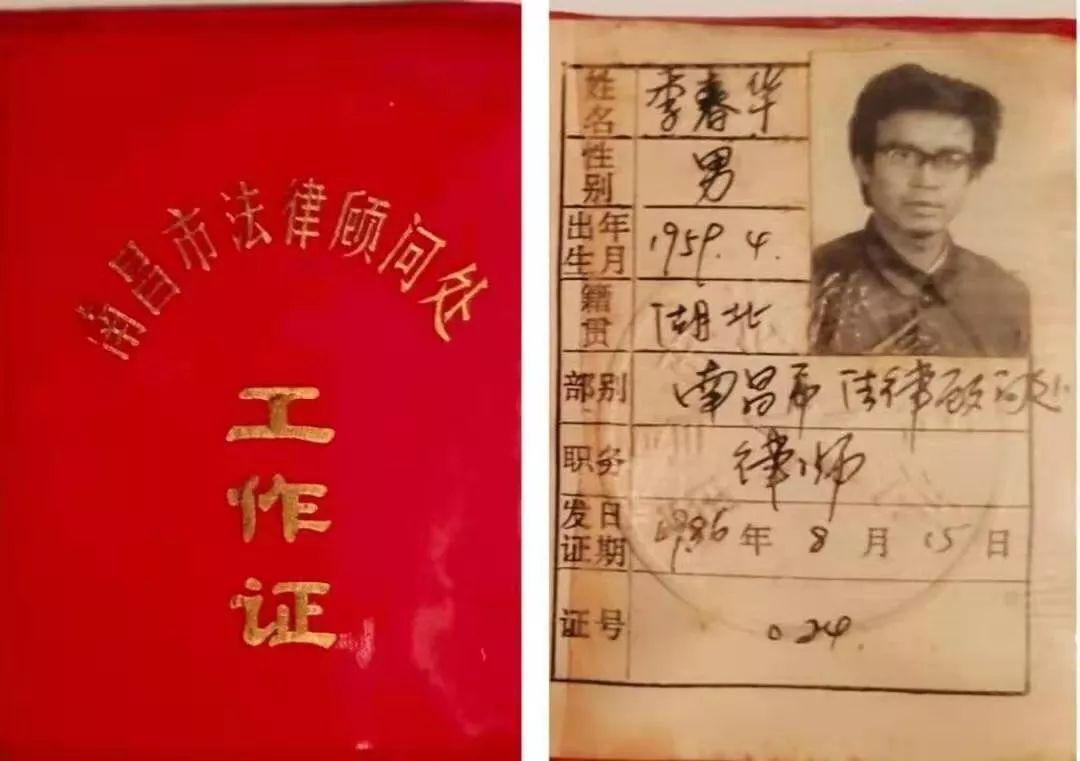 南昌市法律顾问处
工作证
姓名 李春华
性别 男
出生年月 1959.4.
籍贯 湖北
部别 南昌市法律顾问处
职务 律师
发证日期 1986年8月15日
证号 024.